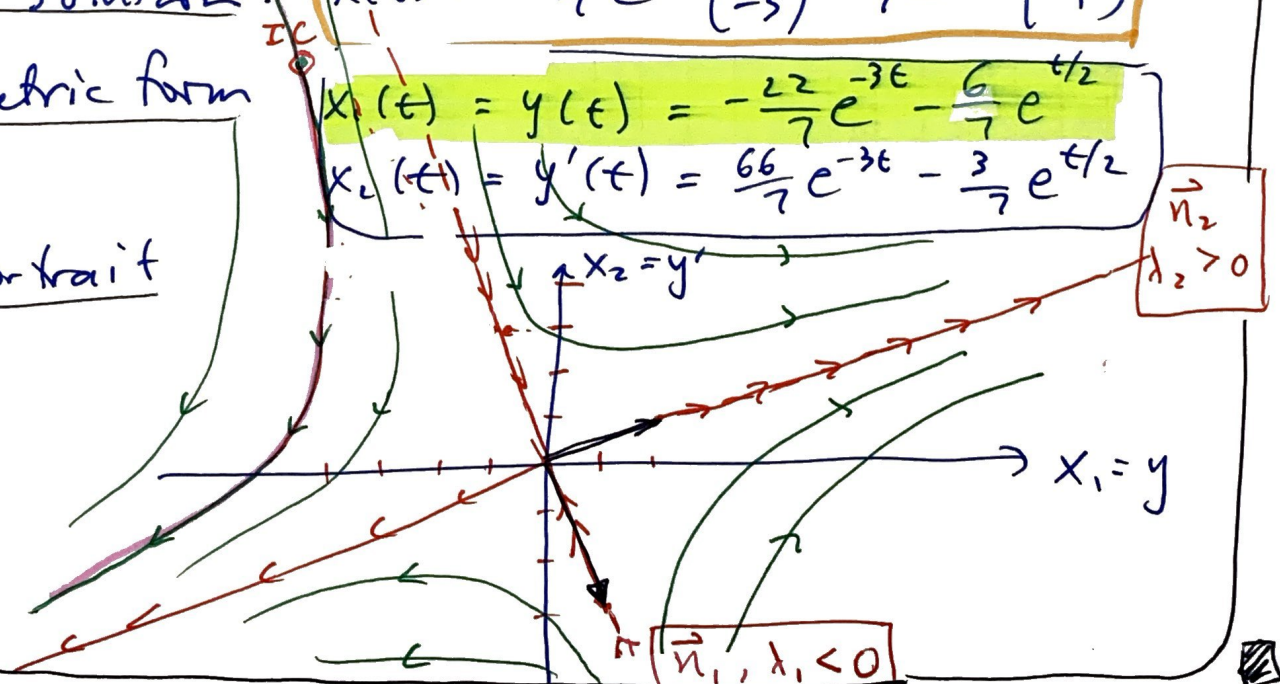 (-3) (1)
IC
etric form
x₁(t) = y(t) = -22/7 e^{-3t} - 6/7 e^{t/2}
x₂(t) = y'(t) = 66/7 e^{-3t} - 3/7 e^{t/2}
rtrait
x₂ = y'
n⃗₂
λ₂ > 0
x₁ = y
n⃗₁, λ₁ < 0